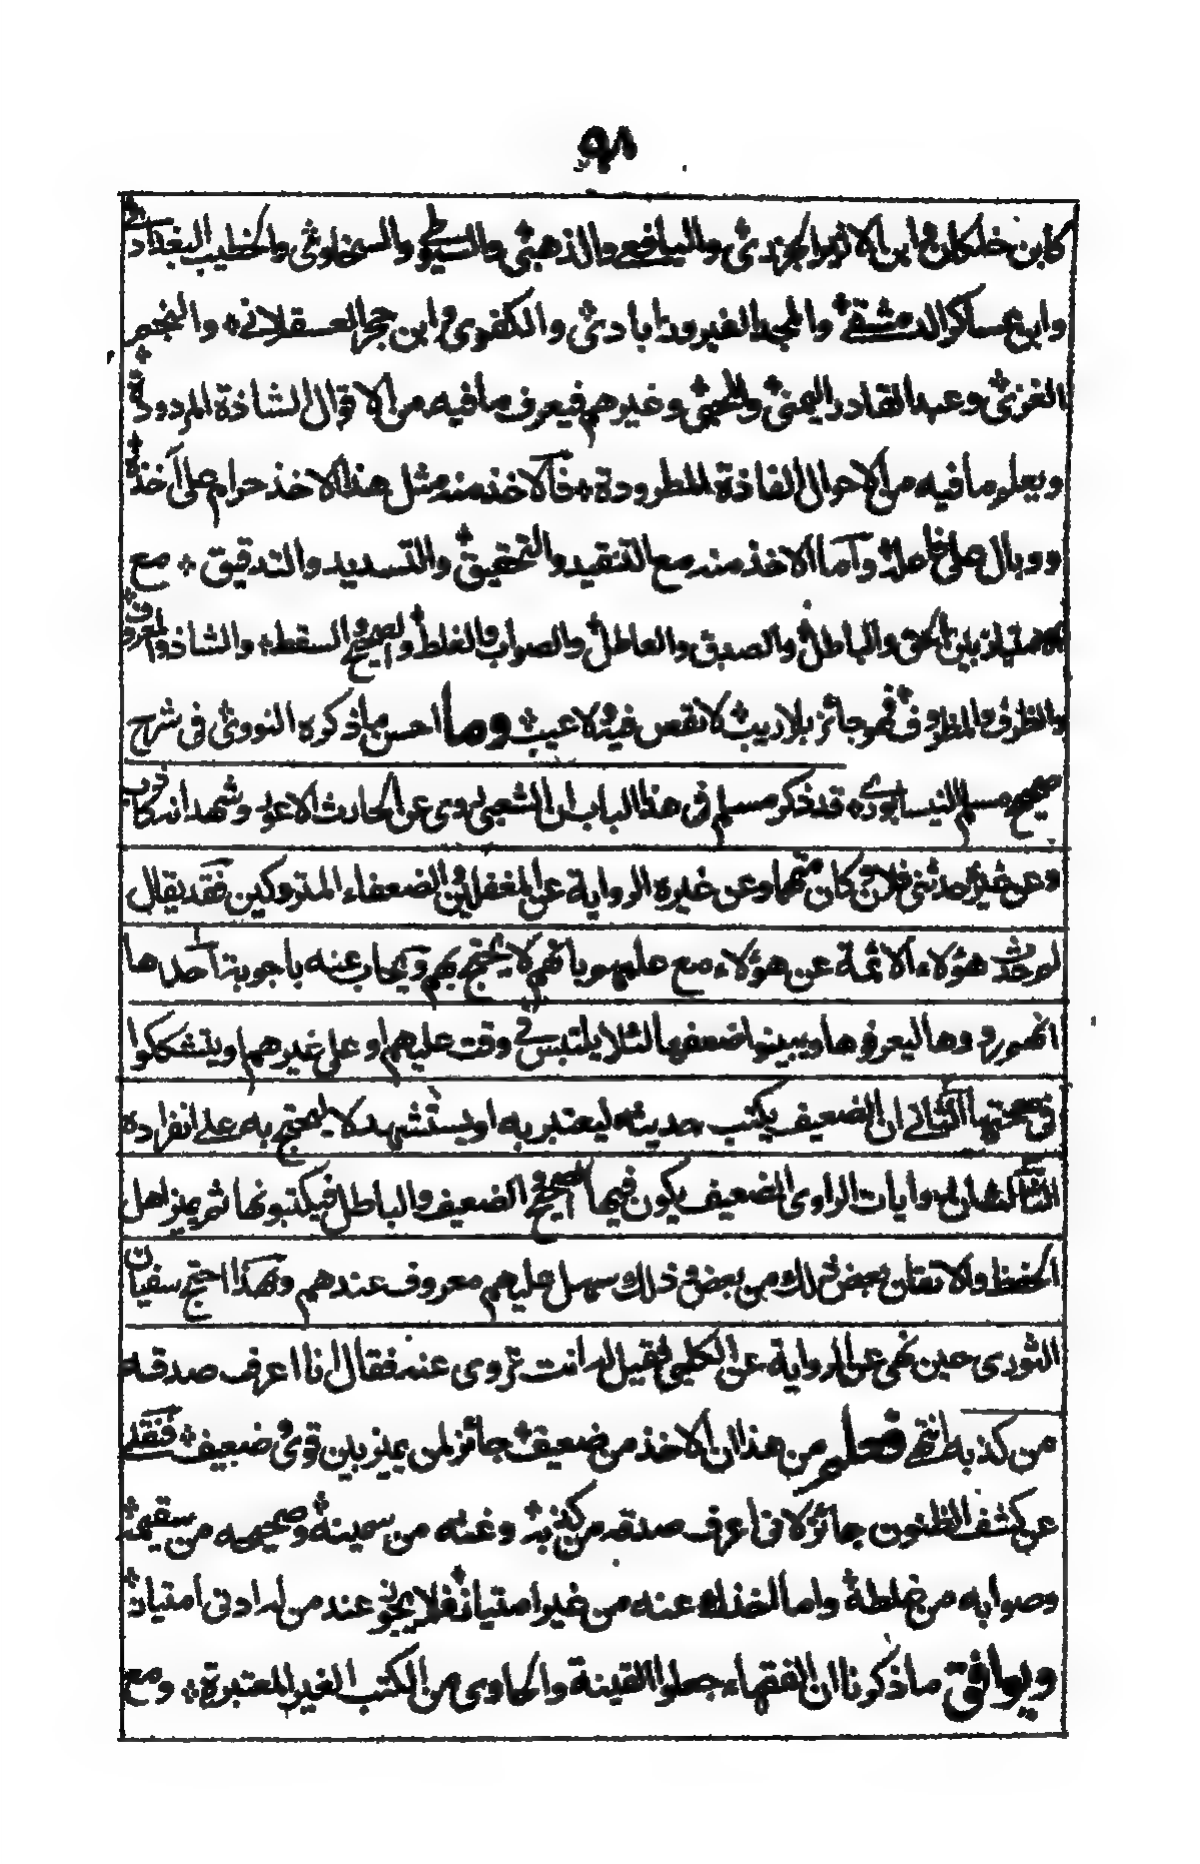 ٥٨
كابن خلكان وابن الاثير الجزري واليافعي والذهبي والسيوطي والسخاوي والخطيب البغدادي
وابن عساكر الدمشقي والمجد الفيروزابادي والكفوي وابن حجر العسقلاني والنجم
الغزي وعبد القادر اليمني والمحبي وغيرهم فيعرف ما فيه من الاقوال الشاذة المردودة
ويعلم ما فيه من الاحوال الفاذة المطرودة فالاخذ منه مثل هذا الاخذ حرام على آخذه
ووبال على حامله واما الاخذ منه مع التنقيد والتحقيق والتسديد والتدقيق مع
الامتياز بين الحق والباطل والصدق والعاطل والصواب والغلط والصحيح السقط والشاذ والمعروف
والظرف والمظروف فهو جائز بلا ريب لا نقص فيه ولا عيب وما احسن ما ذكره النووي في شرح
صحيح مسلم النيسابوري قد ذكر مسلم في هذا الباب ان الشعبي روى عن الحارث الاعور وشهد انه كاذب
وعن غيره حدثني فلان وكان متهما وعن غيره الرواية عن المغفلين والضعفاء المتروكين فقد يقال
لم حدث هؤلاء الائمة عن هؤلاء مع علمهم بانهم لا يحتج بهم ويجاب عنه باجوبة احدها
انهم رووها ليعرفوها وليبينوا ضعفها لئلا يلتبس في وقت عليهم او على غيرهم او يتشككوا
في صحتها الثاني ان الضعيف يكتب حديثه ليعتبر به او يستشهد لا يحتج به على انفراده
الثالث ان روايات الراوي الضعيف يكون فيها الصحيح والضعيف والباطل فيكتبونها ثم يميز اهل
الحفظ والاتقان بعض ذلك من بعض وذلك سهل عليهم معروف عندهم وبهذا احتج سفيان
الثوري حين نهى عن الرواية عن الكلبي فقيل له انت تروي عنه فقال انا اعرف صدقه
من كذبه انتهى فعلم من هذا ان الاخذ من ضعيف جائز لمن يميز بين قوي وضعيف فنقلي
عن كشف الظنون جائز لاني اعرف صدقه من كذبه وغثه من سمينه وصحيحه من سقيمه
وصوابه من غلطه واما الاخذ عنه من غير امتياز فلا يجوز عند من له ادنى امتياز
ويوافق ما ذكرنا ان الفقهاء جعلوا القينة والحاوي من الكتب الغير المعتبرة ومع